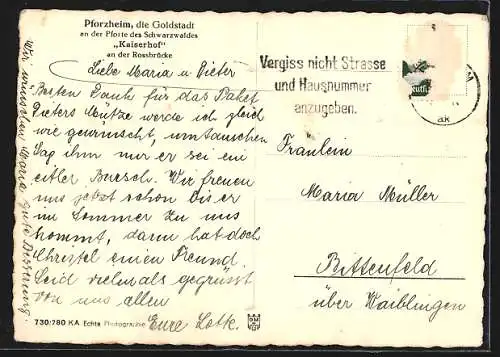 Pforzheim, die Goldstadt
an der Pforte des Schwarzwaldes
„Kaiserhof"
an der Rossbrücke
Liebe Maria u. Dieter
Besten Dank für das Paket
Dieters Mütze werde ich gleich
wie gewünscht, umtauschen
Sag ihm nur er sei ein
eitler Bursch. Wir freuen
uns jetzt schon bis er
im Sommer zu uns
kommt, dann hat doch
Christel einen Freund.
Seid vielmals gegrüsst
von uns allen
Eure Lotte.
Wir wünschen Maria gute Besserung
730:780 KA Echte Photographie
Vergiss nicht Strasse
und Hausnummer
anzugeben.
Fräulein
Maria Müller
Bittenfeld
über Waiblingen
ak